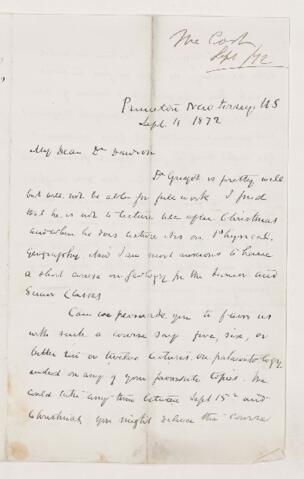 McCosh
Sept /72
Princeton New Jersey, US
Sept. 11 1872
My Dear Dr Dawson
Dr Guyot is pretty well
but will not be able for full work. I find
that he is not to lecture till after Christmas
and when he does lecture it is on Physical
Geography. Now I am most anxious to have
a short course on Geology for the Junior and
Senior Classes
Can we persuade you to favor us
with such a course say five, six, or
better ten or twelve lectures, on palaeontology
indeed on any of your favourite topics. We
could take any time between Sept 15th and
Christmas, you might deliver the course